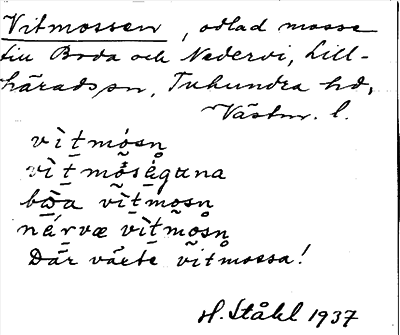 Vitmossen, odlad mosse
till Boda och Nedervi, Lill-
häradssn, Tuhundra hd,
Västm. l.
vìt̠mósn̥
vìt̠mǫ̃sẹ́gɑna
bɷ̀a vìt̠mo̰sn̥
nę́rvæ vìt̠mo̰sn̥
Där växte vitmossa!
H. Ståhl 1937